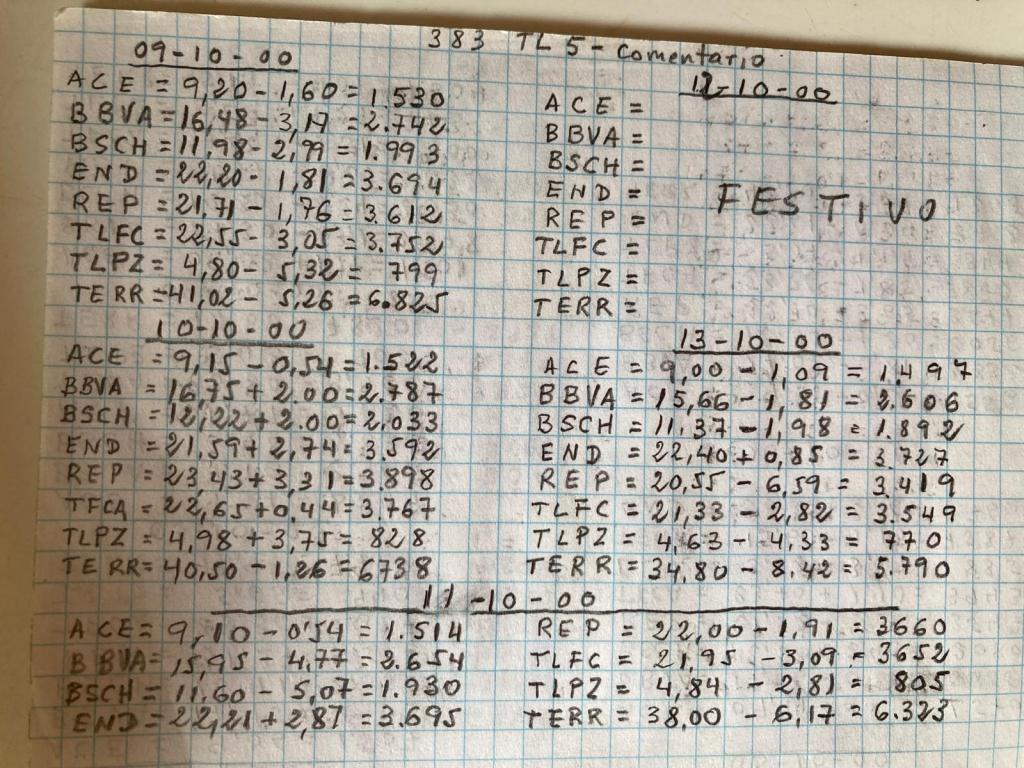 383 TL5 - Comentario
09-10-00
ACE = 9,20 - 1,60 = 1.530
BBVA = 16,48 - 3,17 = 2.742
BSCH = 11,98 - 2,99 = 1.993
END = 22,20 - 1,81 = 3.694
REP = 21,71 - 1,76 = 3.612
TLFC = 22,55 - 3,05 = 3.752
TLPZ = 4,80 - 5,32 = 799
TERR = 41,02 - 5,26 = 6.825
12-10-00
ACE =
BBVA =
BSCH =
END =
REP =
TLFC =
TLPZ =
TERR =
FESTIVO
10-10-00
ACE = 9,15 - 0,54 = 1.522
BBVA = 16,75 + 2.00 = 2.787
BSCH = 12,22 + 2.00 = 2.033
END = 21,59 + 2,74 = 3.592
REP = 23,43 + 3,31 = 3.898
TFCA = 22,65 + 0.44 = 3.767
TLPZ = 4,98 + 3,75 = 828
TERR = 40,50 - 1,26 = 6738
13-10-00
ACE = 9,00 - 1,09 = 1.497
BBVA = 15,66 - 1,81 = 2.606
BSCH = 11.37 - 1,98 = 1.892
END = 22,40 + 0,85 = 3.727
REP = 20,55 - 6,59 = 3.419
TLFC = 21,33 - 2,82 = 3.549
TLPZ = 4,63 - 4.33 = 770
TERR = 34,80 - 8.42 = 5.790
11-10-00
ACE = 9,10 - 0'54 = 1.514
BBVA = 15,95 - 4,77 = 2.654
BSCH = 11.60 - 5,07 = 1.930
END = 22,21 + 2,87 = 3.695
REP = 22,00 - 1,91 = 3660
TLFC = 21,95 - 3,09 = 3652
TLPZ = 4,84 - 2,81 = 805
TERR = 38,00 - 6,17 = 6.323